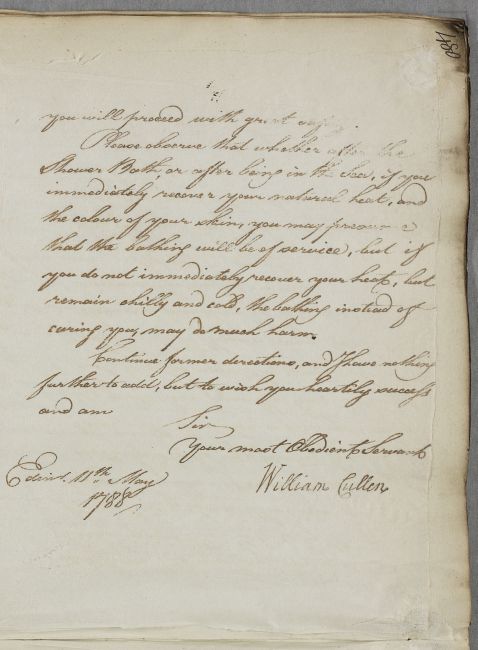 480
you will proceed with great
Please observe that whether after the
Shower Bath, or after being in the Sea, if you
immediately recover your natural heat, and
the colour of your skin, you may presume
that the bathing will be of service, but if
you do not immediately recover your heat, but
remain chilly and cold, the bathing instead of
curing you, may do much harm.
Continue former directions, and I have nothing
further to add, but to wish you heartily success
and am
Sir
Your most Obedient Servant
William Cullen
Edinr. 11th May
1788